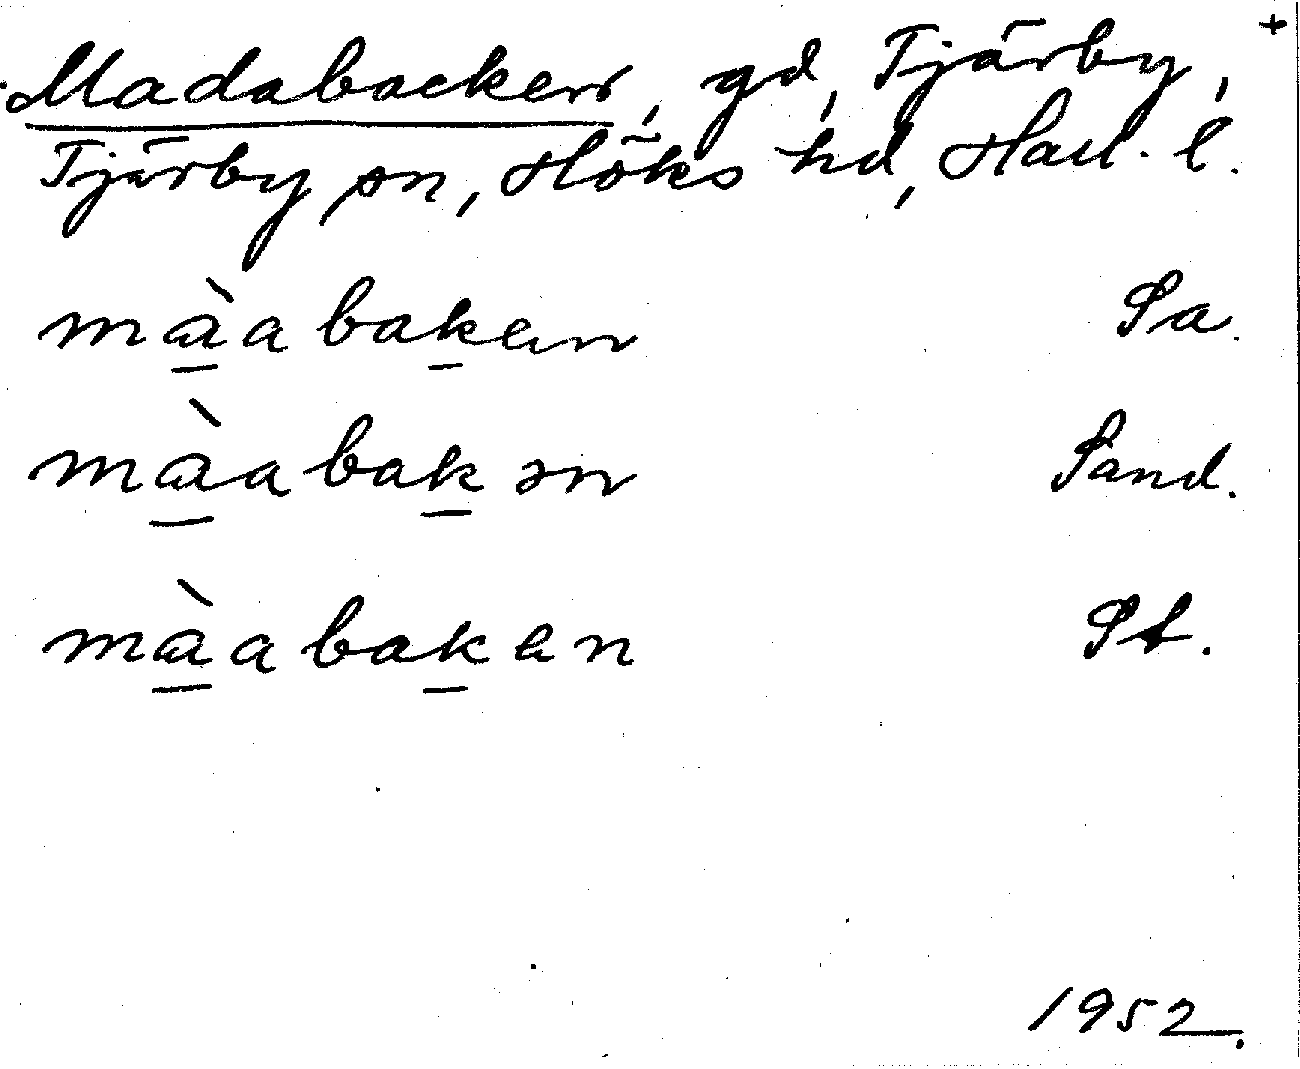 Madabacken, gd, Tjärby, +
Tjärby sn, Höks hd, Hall. l.
màabaken Sa.
màabakən Sand.
màabaken St.
1952.